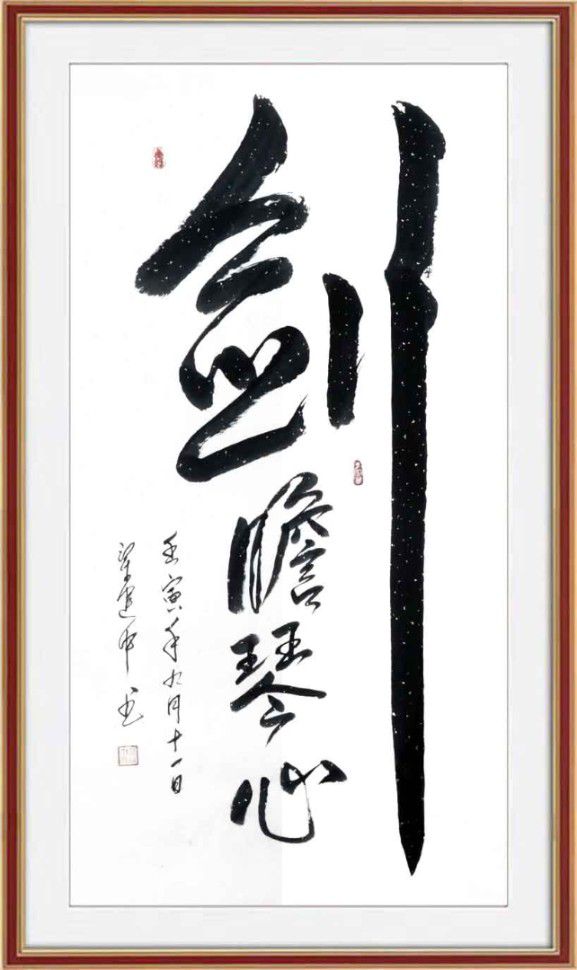 剑膽琴心
壬寅年九月十一日